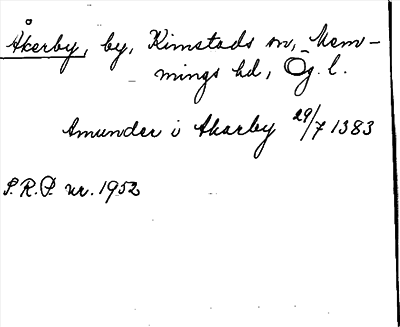 Åkerby, by, Kimstads sn, Mem-
mings hd, Ög. l.
Amunder i Akarby 29/7 1383
S.R.P. nr. 1952